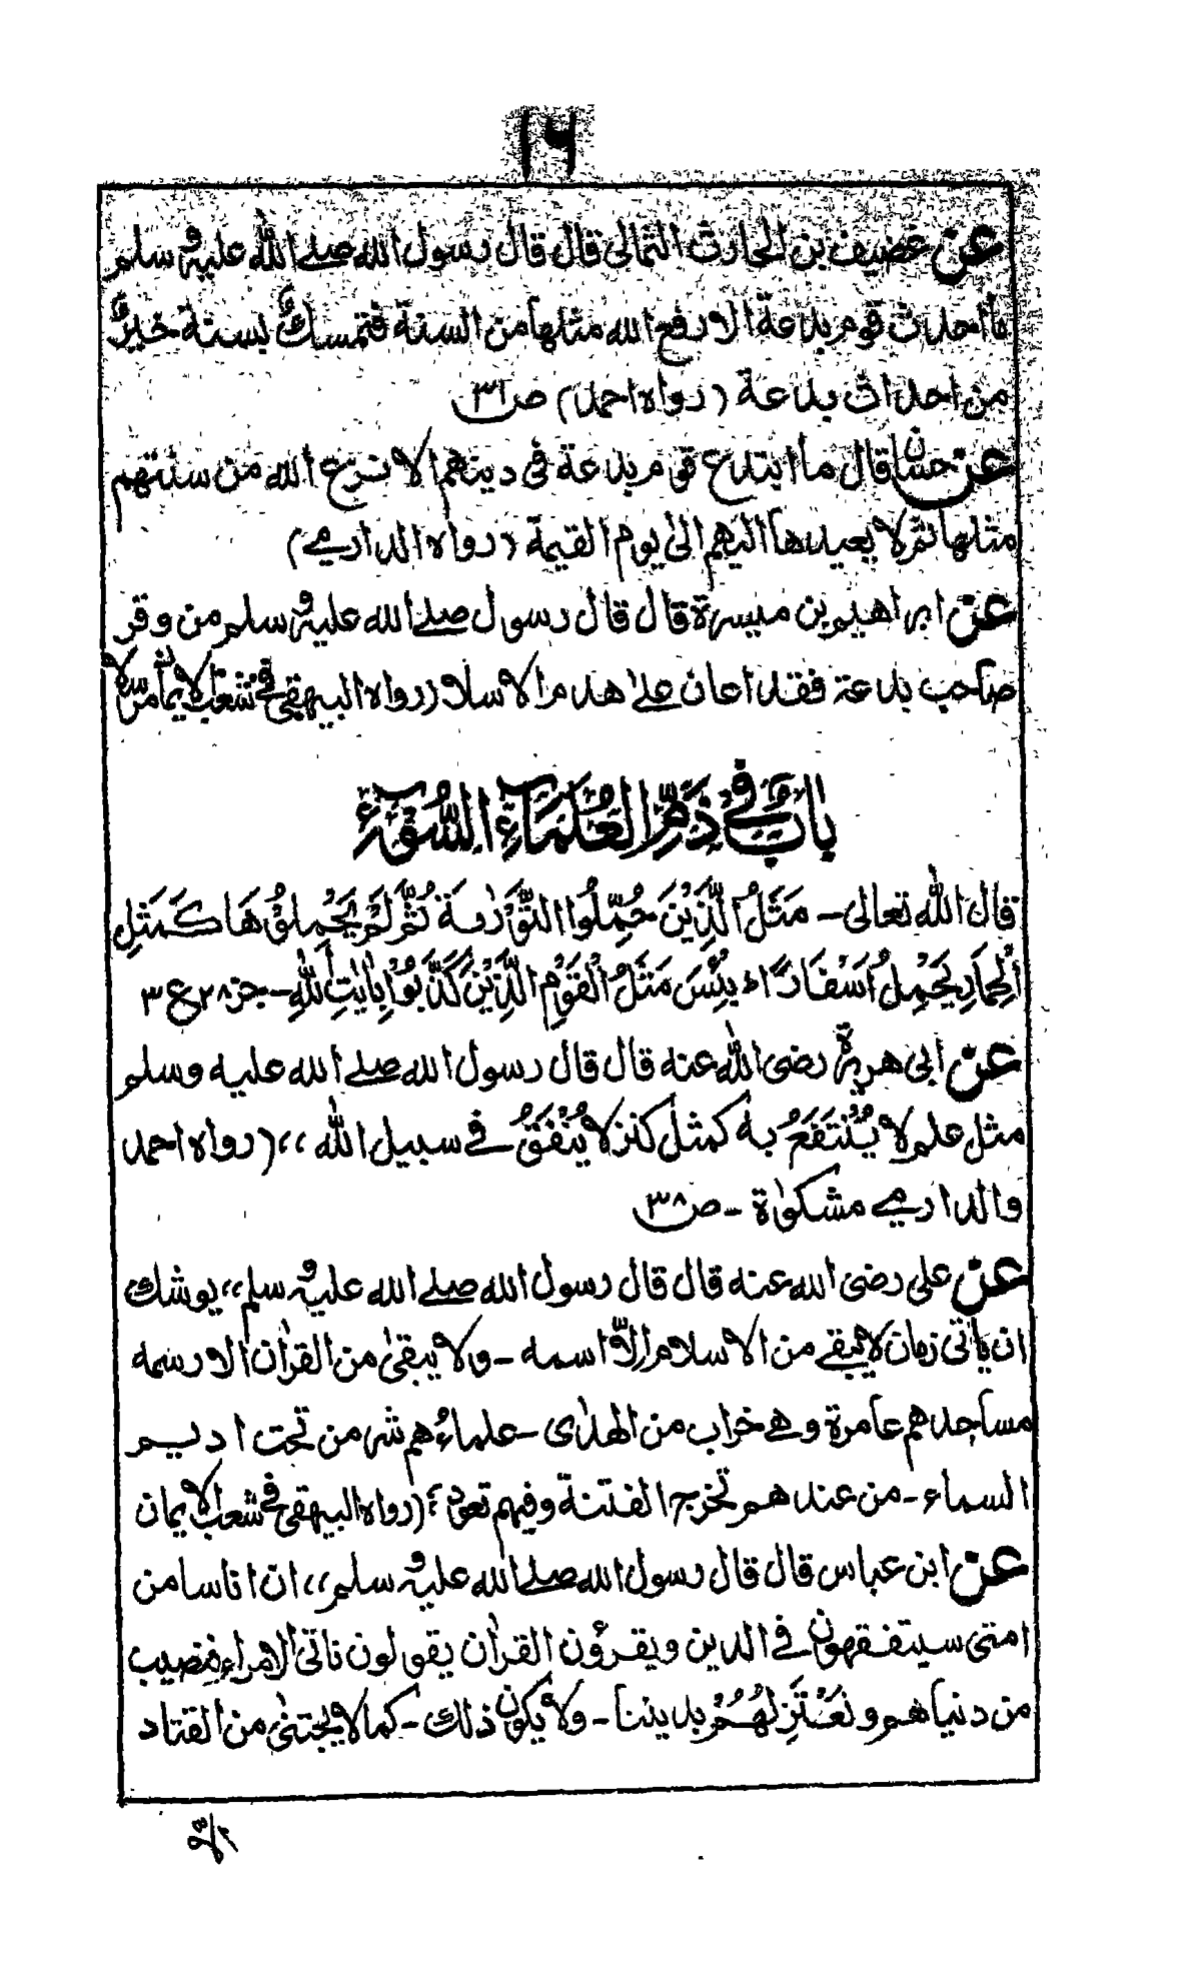 ۱۶
عن غضیف بن الحارث الثمالی قال قال رسول الله صلے الله علیه وسلم
ما احدث قوم بدعة الا رفع الله مثلها من السنة فتمسكٌ بسنة خیرٌ
من احداث بدعة (رواه احمد) ص۳۱
عن حسان قال ما ابتدع قوم بدعة فی دینهم الا نزع الله من سنتهم
مثلها ثم لا یعیدها الیهم الیٰ یوم القیمة (رواه الدارمے)
عن ابراهیم بن میسرة قال قال رسول صلے الله علیه وسلم من وقر
صاحب بدعة فقد اعان علیٰ هدم الاسلام (رواه البیهقی فے شعب الایمان مرسلا
بابٌ فے ذكر العُلَمَآءِ السُّوْٓءِ
قال الله تعالی۔ مَثَلُ الَّذِیْنَ حُمِّلُوا التَّوْرٰىةَ ثُمَّ لَمْ یَحْمِلُوْهَا كَمَثَلِ
الْحِمَارِ یَحْمِلُ اَسْفَارًا ؕ بِئْسَ مَثَلُ الْقَوْمِ الَّذِیْنَ كَذَّبُوْا بِاٰیٰتِ اللّٰهِ۔ جز ۲۸ ع ۳
عن ابی هریرة رضی الله عنه قال قال رسول الله صلے الله علیه وسلم
مثل علم لا یُنْتَفَعُ به كمثل كنز لا یُنْفَقُ فے سبیل الله ،، (رواه احمد
والدارمے مشكوٰة ۔ ص۳۸
عن علی رضی الله عنه قال قال رسول الله صلے الله علیه وسلم،، یوشك
ان یاتی زمان لا یبقے من الاسلام اِلّا اسمه ۔ ولا یبقیٰ من القرٰان الا رسمه
مساجدهم عامرة وهے خراب من الهدٰی ۔ علماءُهم شر من تحت ادیم
السماء ۔ من عندهم تخرج الفتنة وفیهم تعود، (رواه البیهقی فے شعب الایمان
عن ابن عباس قال قال رسول الله صلے الله علیه وسلم،، ان اناسا من
امتی سیتفقهون فے الدین ویقرؤن القرٰان یقولون ناتی الامراء فنصیب
من دنیاهم ونَعْتَزِلُهُمْ بدیننا ۔ ولا یكون ذلك ۔ كما لا یجتنیٰ من القتاد